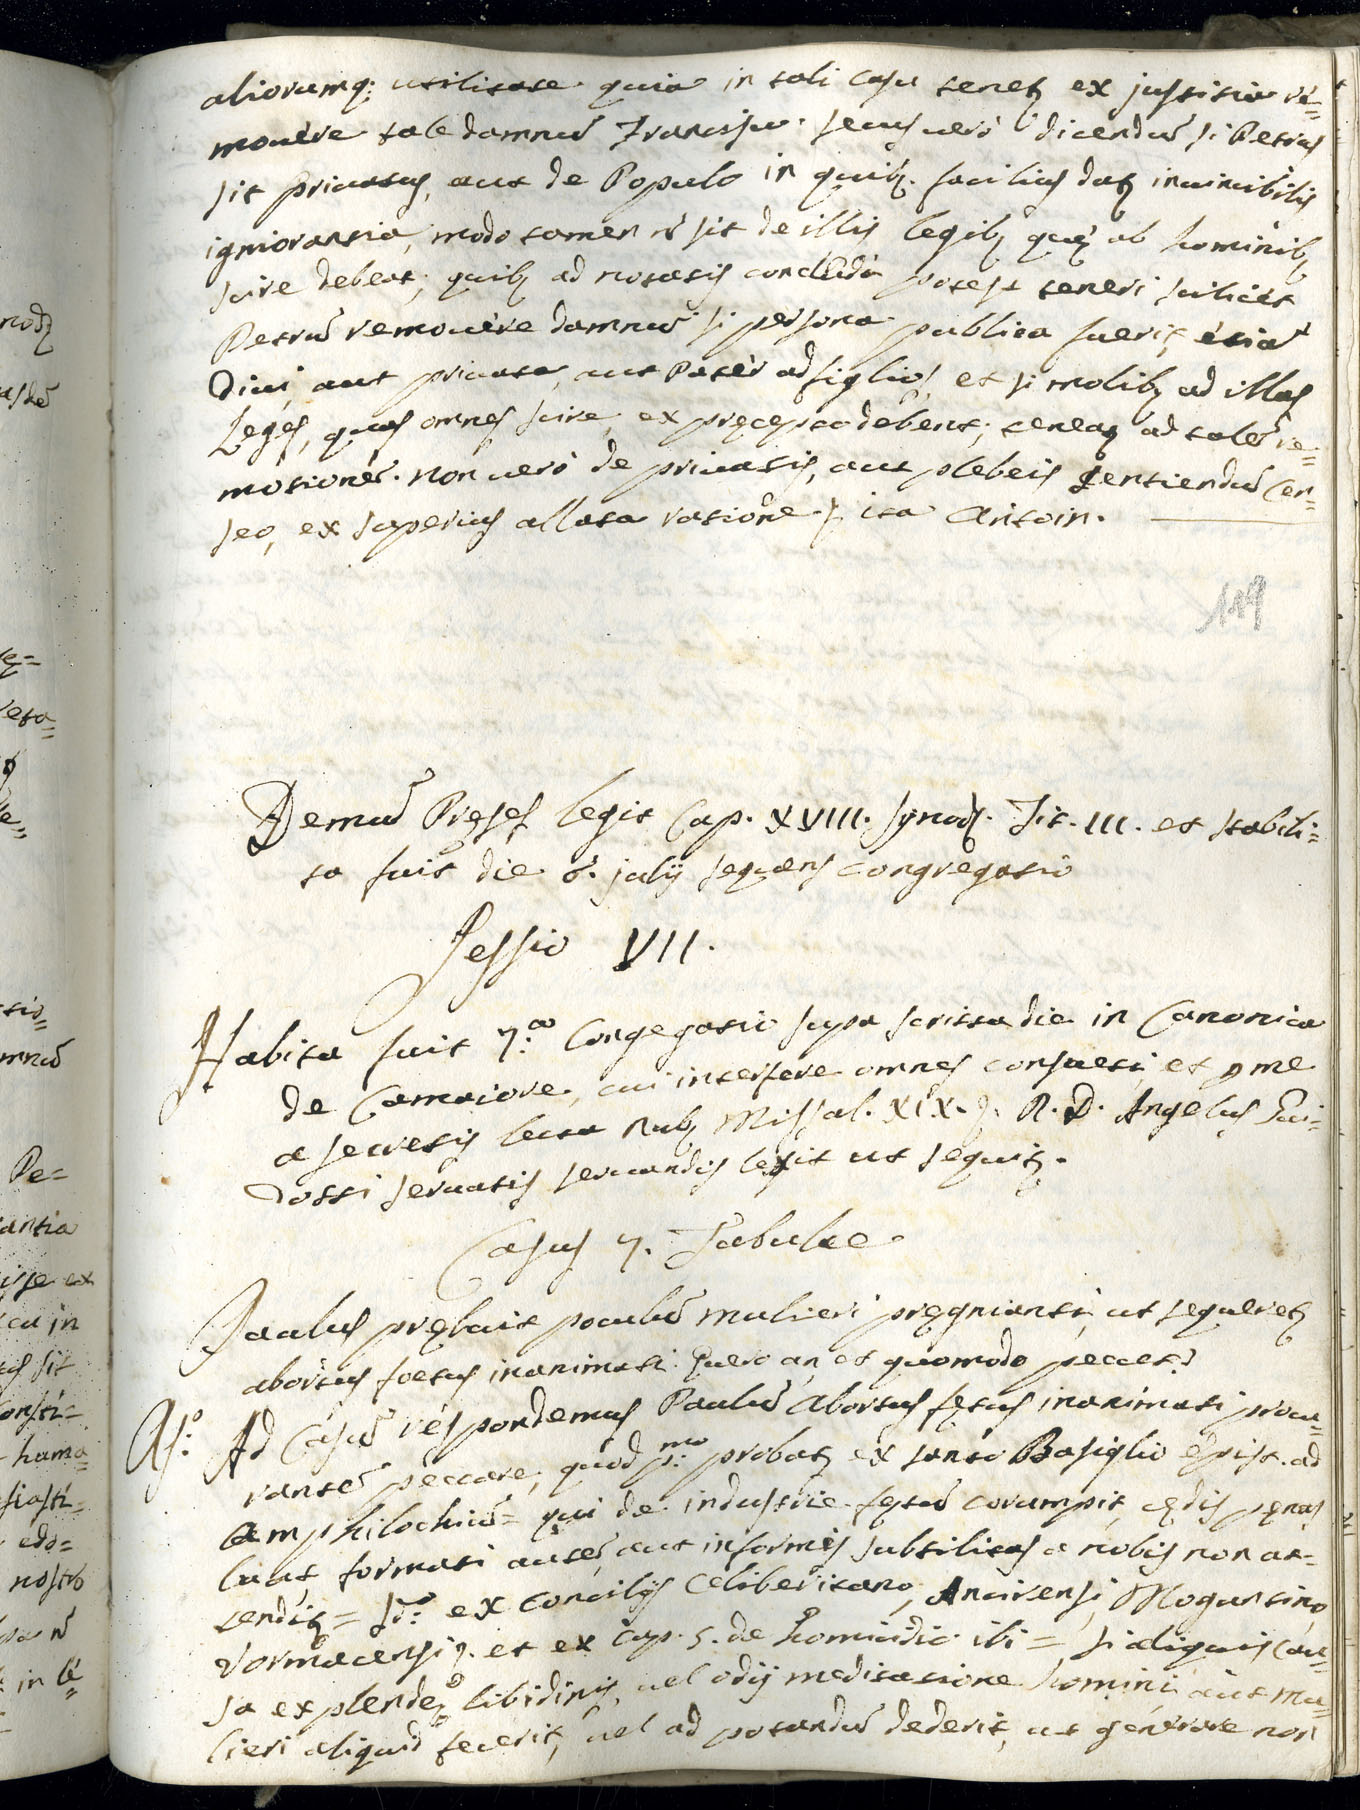 aliorumq; utilitate quia in tali casu tenet3 ex justitia re=
mouere tale damnũ Francisci. secus uerò dicendũ si Petrus
sit priuatus, aut de Populo in quib3. facilius dat3 inuincibilis
igniorantia, modo tamen nõ sit de illis legib3 quę ab hominib3
scire debeat; quib3 ad notatis concludi potest teneri scilicet
Petrũ remouere damnũ si persona publica fuerit, etiã
Diui, aut priuata, aut Pater ad figlios, et si molib3 ad illas
Leges, quas omnes scire, ex pręcepto debent; teneat3 ad talẽ re=
motionẽ. non uerò de priuatis, aut plebeis sentiendũ Cen=
seo, ex superius allata ratione. ita Antoin.
119
Demũ Pręses legit Cap. XVIII. synod. Tit. III. et stabili=
ta fuit die 6. julij sequens congregatio
Sessio VII.
Habita fuit 7.a Congegatio supa scritta die in Canonica
de Camaiore, cui interfere omnes consueti, et p me
a secretis lecta Rub3 Missal. XIX. R. D. Angelus Gui=
dotti seruatis seruandis lexit ut sequit3.
Casus 7. Tabulae
Paulus prębuit poculũ mulieri pręgnianti, ut sequeret3
abortus foetus inanimati. Quero an, et quomodo peccet?
Rs.o Ad Casũ respondemus Paulũ abortus fętus inanimati procu=
rantẽ peccare, quod p.mo probat3 ex santo Basiglio epist. ad
Amphilochiũ= qui de industrie fętũ corumpit, cędis pęnas
luat, formati autẽ, aut informis subtilitas a nobis non at=
tendit3= s.do ex Concilijs Celiberitano, Ancirensi, Moguntino
Vormacensi. et ex cap. 5. de homicidio ibi= si aliquis Cau=
sa explendę libidinis, uel odij meditatione homini aut mu=
lieri aliquid fecerit, uel ad potandũ dederit, ut generare non